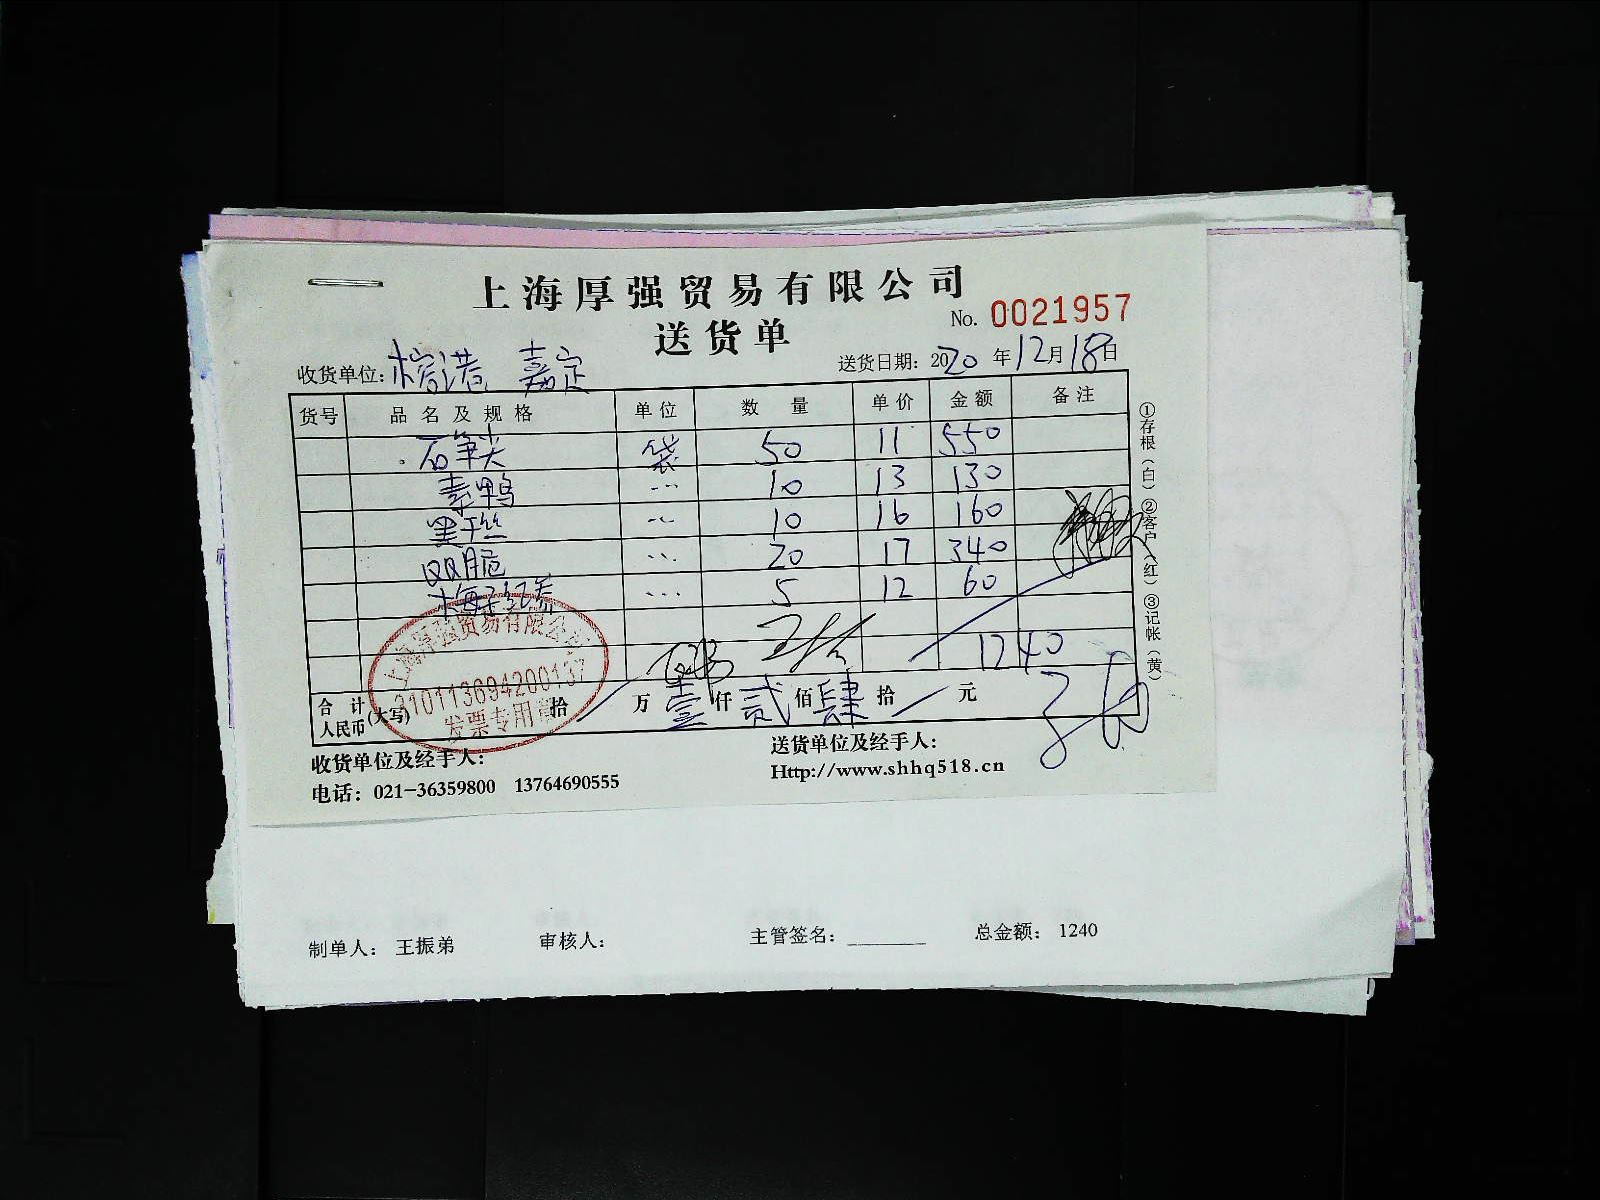 上海厚强贸易有限公司
No. 0021957
送货单
收货单位：榕港 嘉定 送货日期：2020年12月18日
货号 品名及规格 单位 数量 单价 金额 备注
石笋尖 袋 50 11 550
素鸭 ... 10 13 130
黑干丝 ... 10 16 160
QQ脆 ... 20 17 340
... 5 12 60
1240
合计人民币(大写) 拾 万 壹 仟 贰 佰 肆 拾 元
上海厚强贸易有限公司
310113694200137
发票专用章
①存根（白）②客户（红）③记帐（黄）
收货单位及经手人： 送货单位及经手人：
电话：021-36359800 13764690555 Http://www.shhq518.cn
制单人： 王振弟 审核人： 主管签名：________ 总金额： 1240